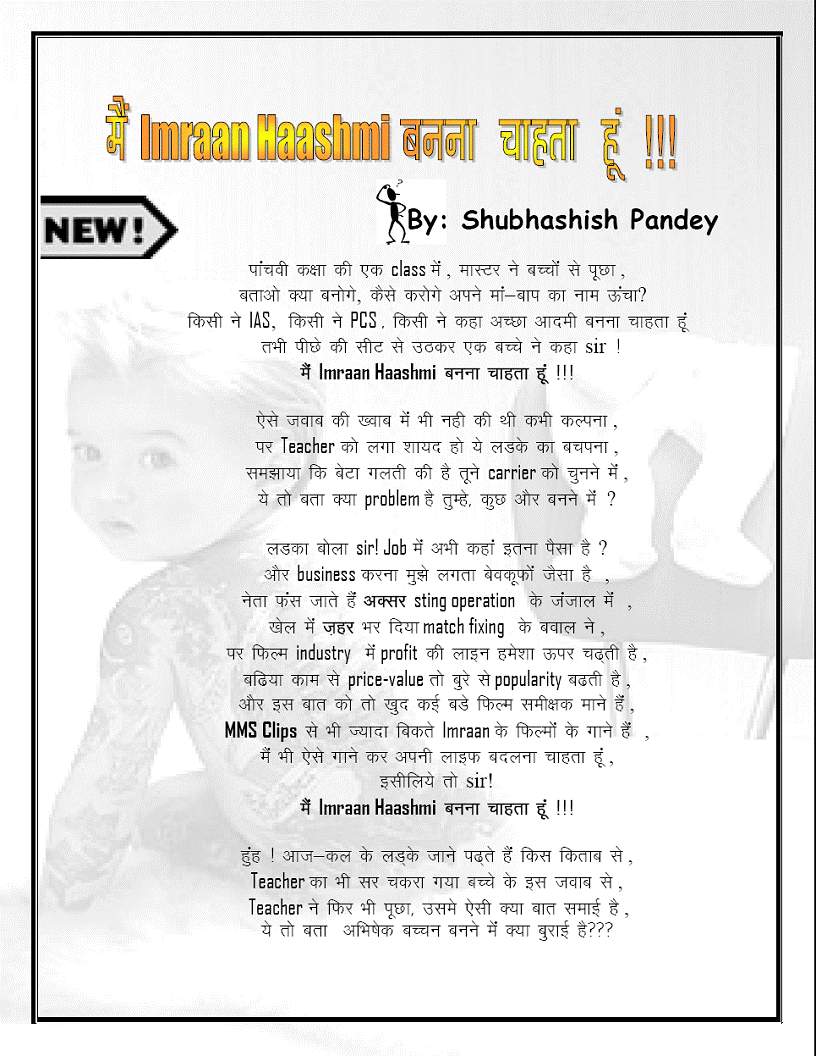 मैं Imraan Haashmi बनना चाहता हूं !!!
NEW!
?
By: Shubhashish Pandey
पांचवी कक्षा की एक class में , मास्टर ने बच्चों से पूछा ,
बताओ क्या बनोगे, कैसे करोगे अपने मां–बाप का नाम ऊंचा?
किसी ने IAS, किसी ने PCS , किसी ने कहा अच्छा आदमी बनना चाहता हूं
तभी पीछे की सीट से उठकर एक बच्चे ने कहा sir !
मैं Imraan Haashmi बनना चाहता हूं !!!
ऐसे जवाब की ख्वाब में भी नही की थी कभी कल्पना ,
पर Teacher को लगा शायद हो ये लडके का बचपना ,
समझाया कि बेटा गलती की है तूने carrier को चुनने में ,
ये तो बता क्या problem है तुम्हे, कुछ और बनने में ?
लडका बोला sir! Job में अभी कहां इतना पैसा है ?
और business करना मुझे लगता बेवकूफों जैसा है ,
नेता फंस जाते हैं अक्सर sting operation के जंजाल में ,
खेल में ज़हर भर दिया match fixing के बवाल ने ,
पर फिल्म industry में profit की लाइन हमेशा ऊपर चढ़ती है ,
बढिया काम से price-value तो बुरे से popularity बढती है ,
और इस बात को तो खुद कई बडे फिल्म समीक्षक माने हैं ,
MMS Clips से भी ज्यादा बिकते Imraan के फिल्मों के गाने हैं ,
मैं भी ऐसे गाने कर अपनी लाइफ बदलना चाहता हूं ,
इसीलिये तो sir!
मैं Imraan Haashmi बनना चाहता हूं !!!
हुंह ! आज–कल के लड़के जाने पढ़ते हैं किस किताब से ,
Teacher का भी सर चकरा गया बच्चे के इस जवाब से ,
Teacher ने फिर भी पूछा, उसमे ऐसी क्या बात समाई है ,
ये तो बता अभिषेक बच्चन बनने में क्या बुराई है???